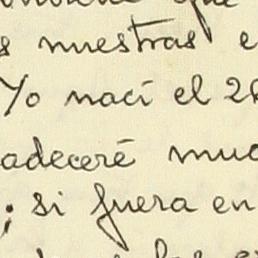 que
s nuestras e
Yo nací el 26
adeceré muc
; si fuera en